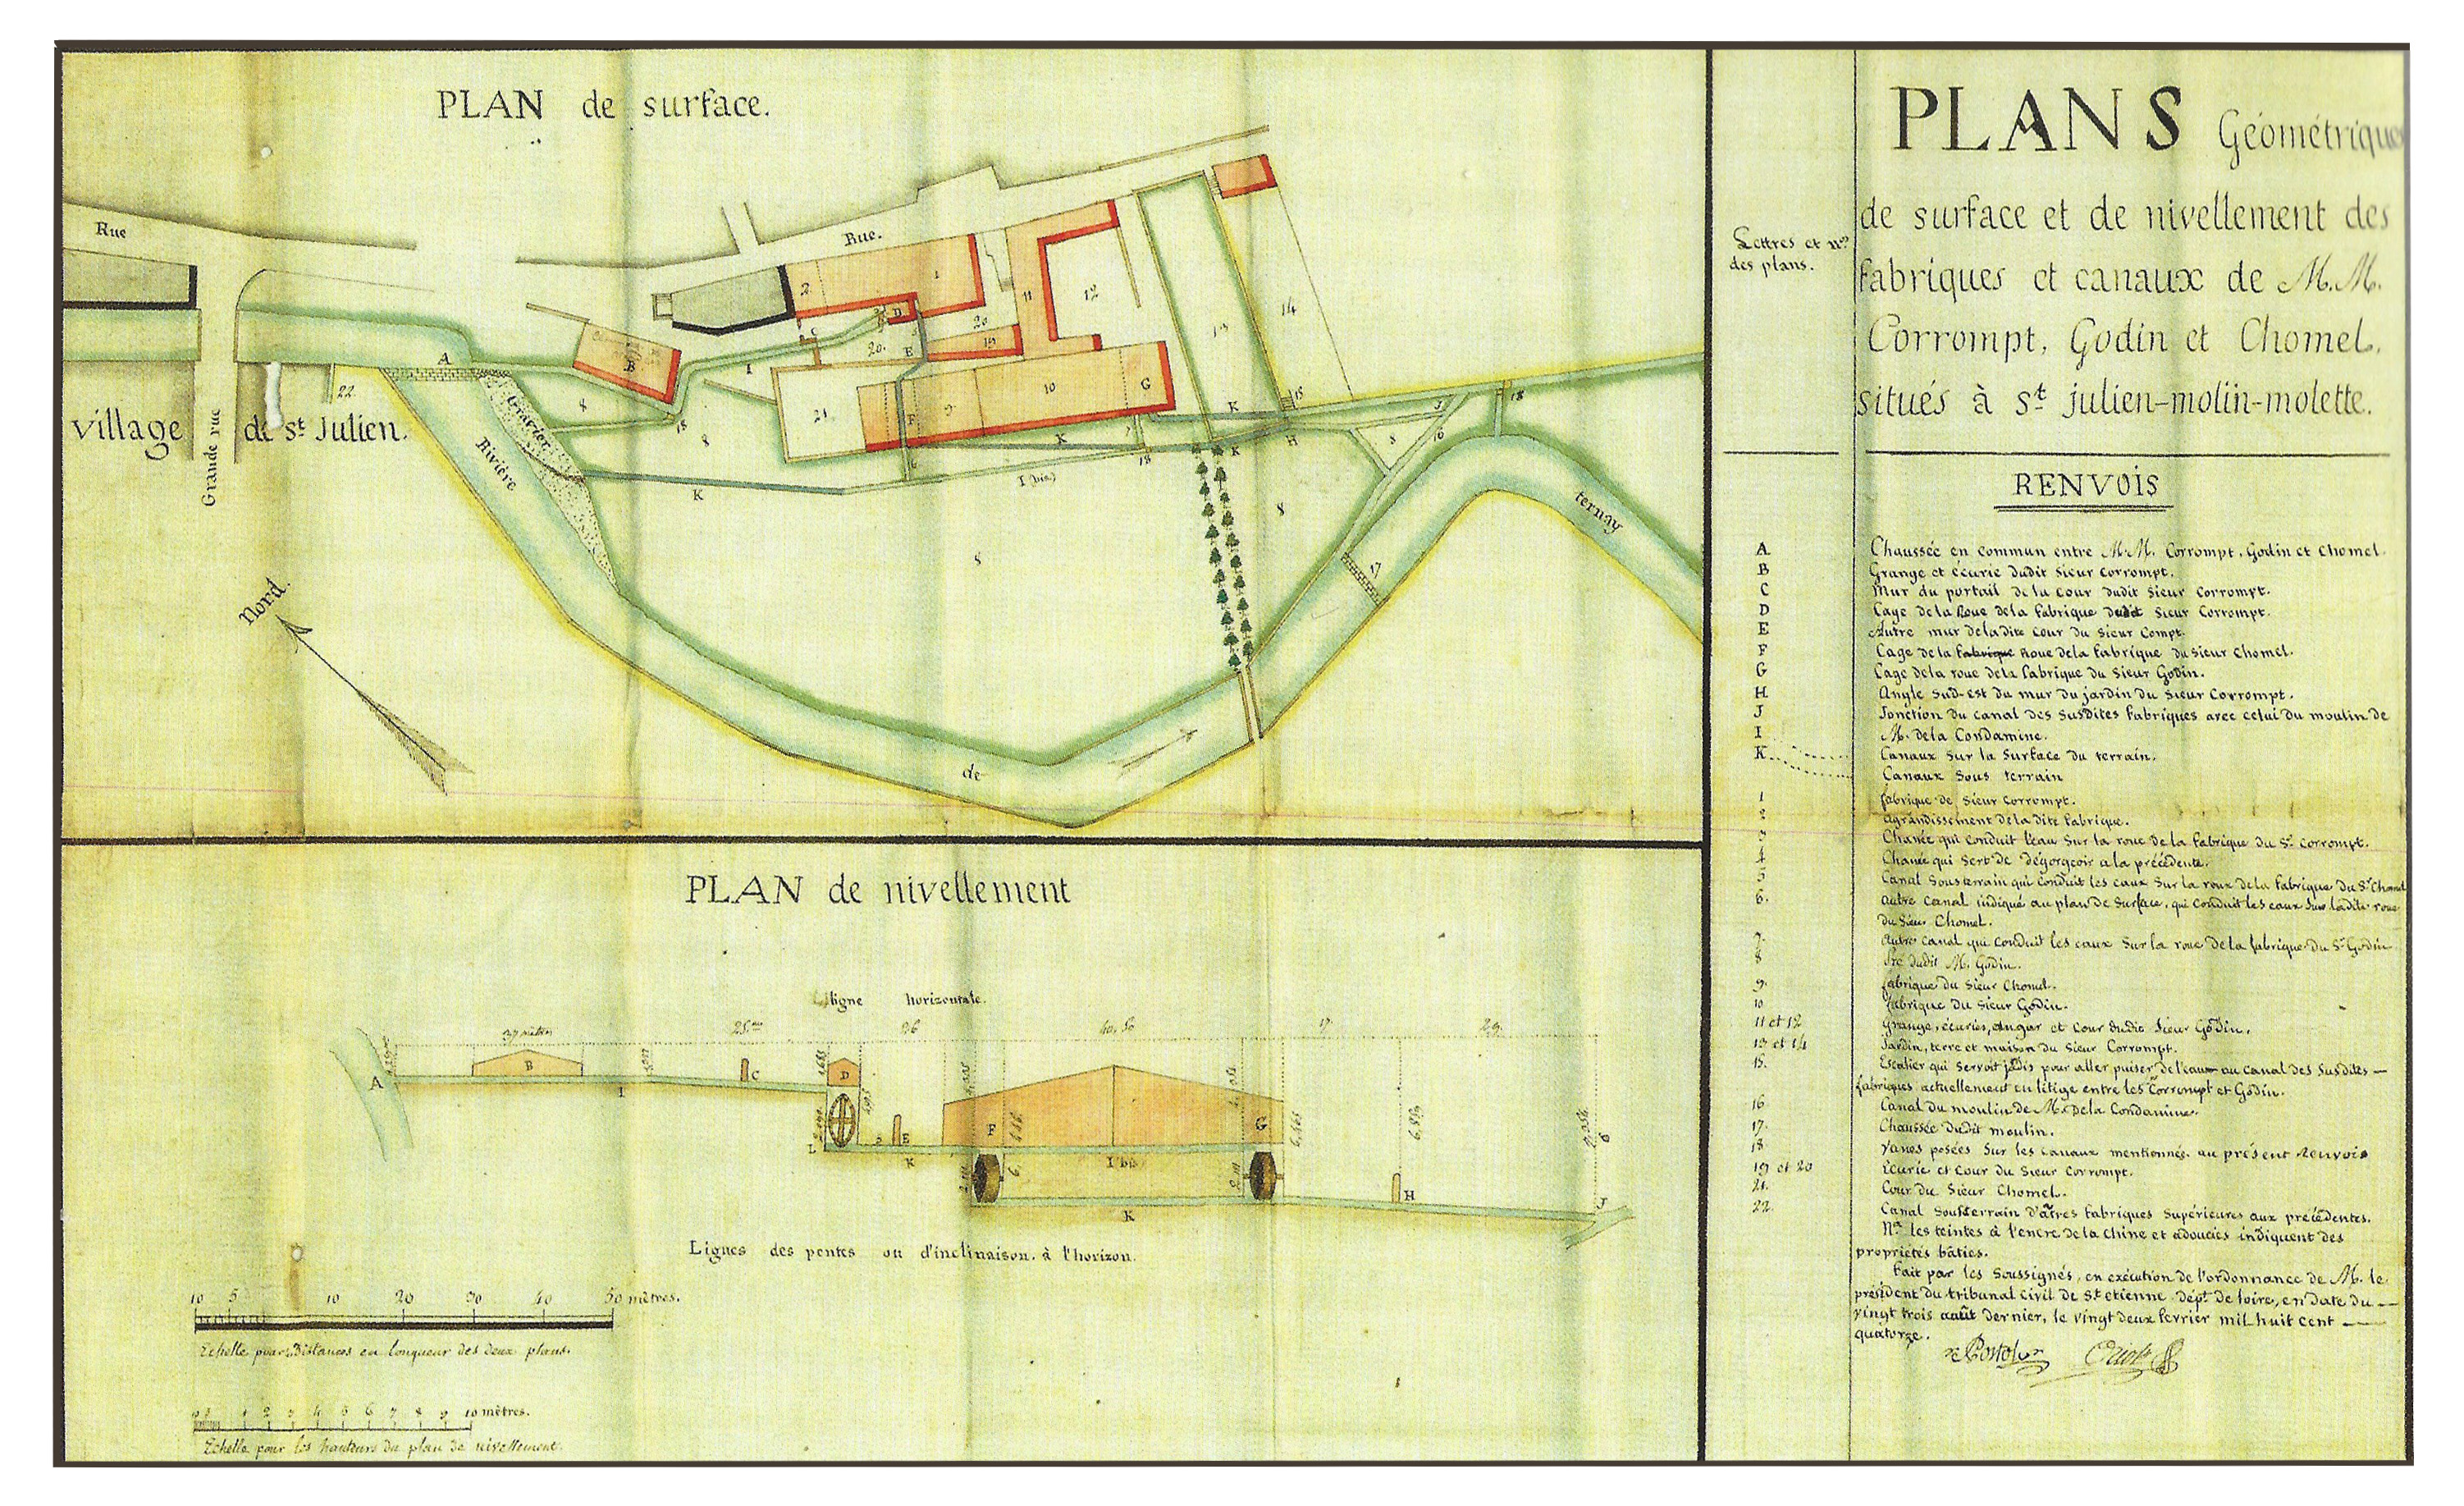 PLAN de surface.
Rue
Rue.
Village de St Julien.
Grande rue
Rivière
gravier
de
ternay
Nord.
A
B
C
D
E
F
G
H
J
I
I (bis)
K
K
K
K
K
1
2
20
20.
19
11
12
13
14
15
9
10
21
22.
8
8
8
8
8
6
7
16
17
18
18
18
PLAN de nivellement
ligne horizontale.
37 mètres
25.m
26
40.50
17.
29.
A
B
I
C
D
L
5
E
K
F
I bis
G
K
H
J
Lignes des pentes ou d'inclinaison. à l'horizon.
10 5 10 20 30 40 50 mètres.
Echelle pour Distances en longueur des deux plans.
1 2 3 4 5 6 7 8 9 10 mètres.
Echelle pour les hauteurs du plan de nivellement.
PLANS Géométriques
de surface et de nivellement des
fabriques et canaux de M.M.
Corrompt, Godin et Chomel.
situés à st julien-molin-molette.
Lettres et nos
des plans.
RENVOIS
A Chaussée en commun entre M.M. Corrompt, Godin et Chomel.
B Grange et écurie dudit Sieur Corrompt.
C Mur du portail de la cour dudit Sieur Corrompt.
D Cage de la Roue de la fabrique dudit Sieur Corrompt.
E Autre mur de ladite cour du Sieur Compt.
F Cage de la fabrique Roue de la fabrique du Sieur Chomel.
G Cage de la roue de la fabrique du Sieur Godin.
H Angle Sud-est du mur du jardin du Sieur Corrompt.
J Jonction du canal des susdites fabriques avec celui du moulin de
I M. de la Condamine.
K Canaux sur la surface du terrain.
Canaux sous terrain
1 fabrique de Sieur Corrompt.
2 agrandissement de la dite fabrique.
3 Chanée qui conduit l'eau sur la roue de la fabrique du Sr Corrompt.
4 Chanée qui sert de dégorgeoir a la précédente.
5 Canal sousterrain qui conduit les eaux sur la roux de la fabrique du Sr Chomel
6. autre canal indiqué au plan de surface, qui conduit les eaux sur ladite roue
du Sieur Chomel.
7. Autre canal qui conduit les eaux sur la roue de la fabrique du Sr Godin
8 Pré dudit M. Godin.
9. fabrique du Sieur Chomel.
10 fabrique du Sieur Godin.
11 et 12 Grange, écuries, angar et cour dudit Sieur Godin.
13 et 14 Jardin, terre et maison du Sieur Corrompt.
15. Escalier qui servoit jadis pour aller puiser de l'eau au canal des susdites
fabriques actuellement en litige entre les Srs Corrompt et Godin.
16. Canal du moulin de M. de la Condamine.
17. Chaussée dudit moulin.
18 Vanes posées sur les canaux mentionnés au présent Renvois
19 et 20 Ecurie et Cour du Sieur Corrompt.
21. Cour du Sieur Chomel.
22. Canal Sousterrain d'autres fabriques supérieures aux précédentes.
Na les teintes à l'encre de la chine et adoucies indiquent des
propriétés bâties.
Fait par les Soussignés, en exécution de l'ordonnance de M. le
président du tribunal civil de St etienne dépt de loire, en date du
vingt trois août dernier, le vingt deux fevrier mil huit cent
quatorze.